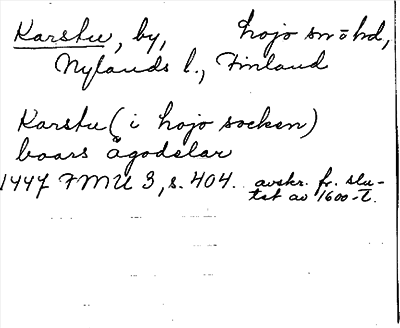 Karstu, by, Lojo sn o hd,
Nylands l., Finland
Karstu (i Lojo socken)
boars ägodelar
1447 FMU 3, s. 404. avskr. fr. slu-
tet av 1600-t.